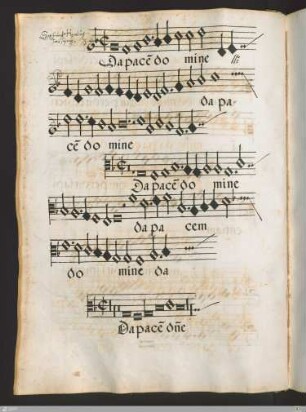 Da pacē do mine
da pa-
cē do mine
Da pacē do mine
da pa cem
do mine da
Da pacē dñe